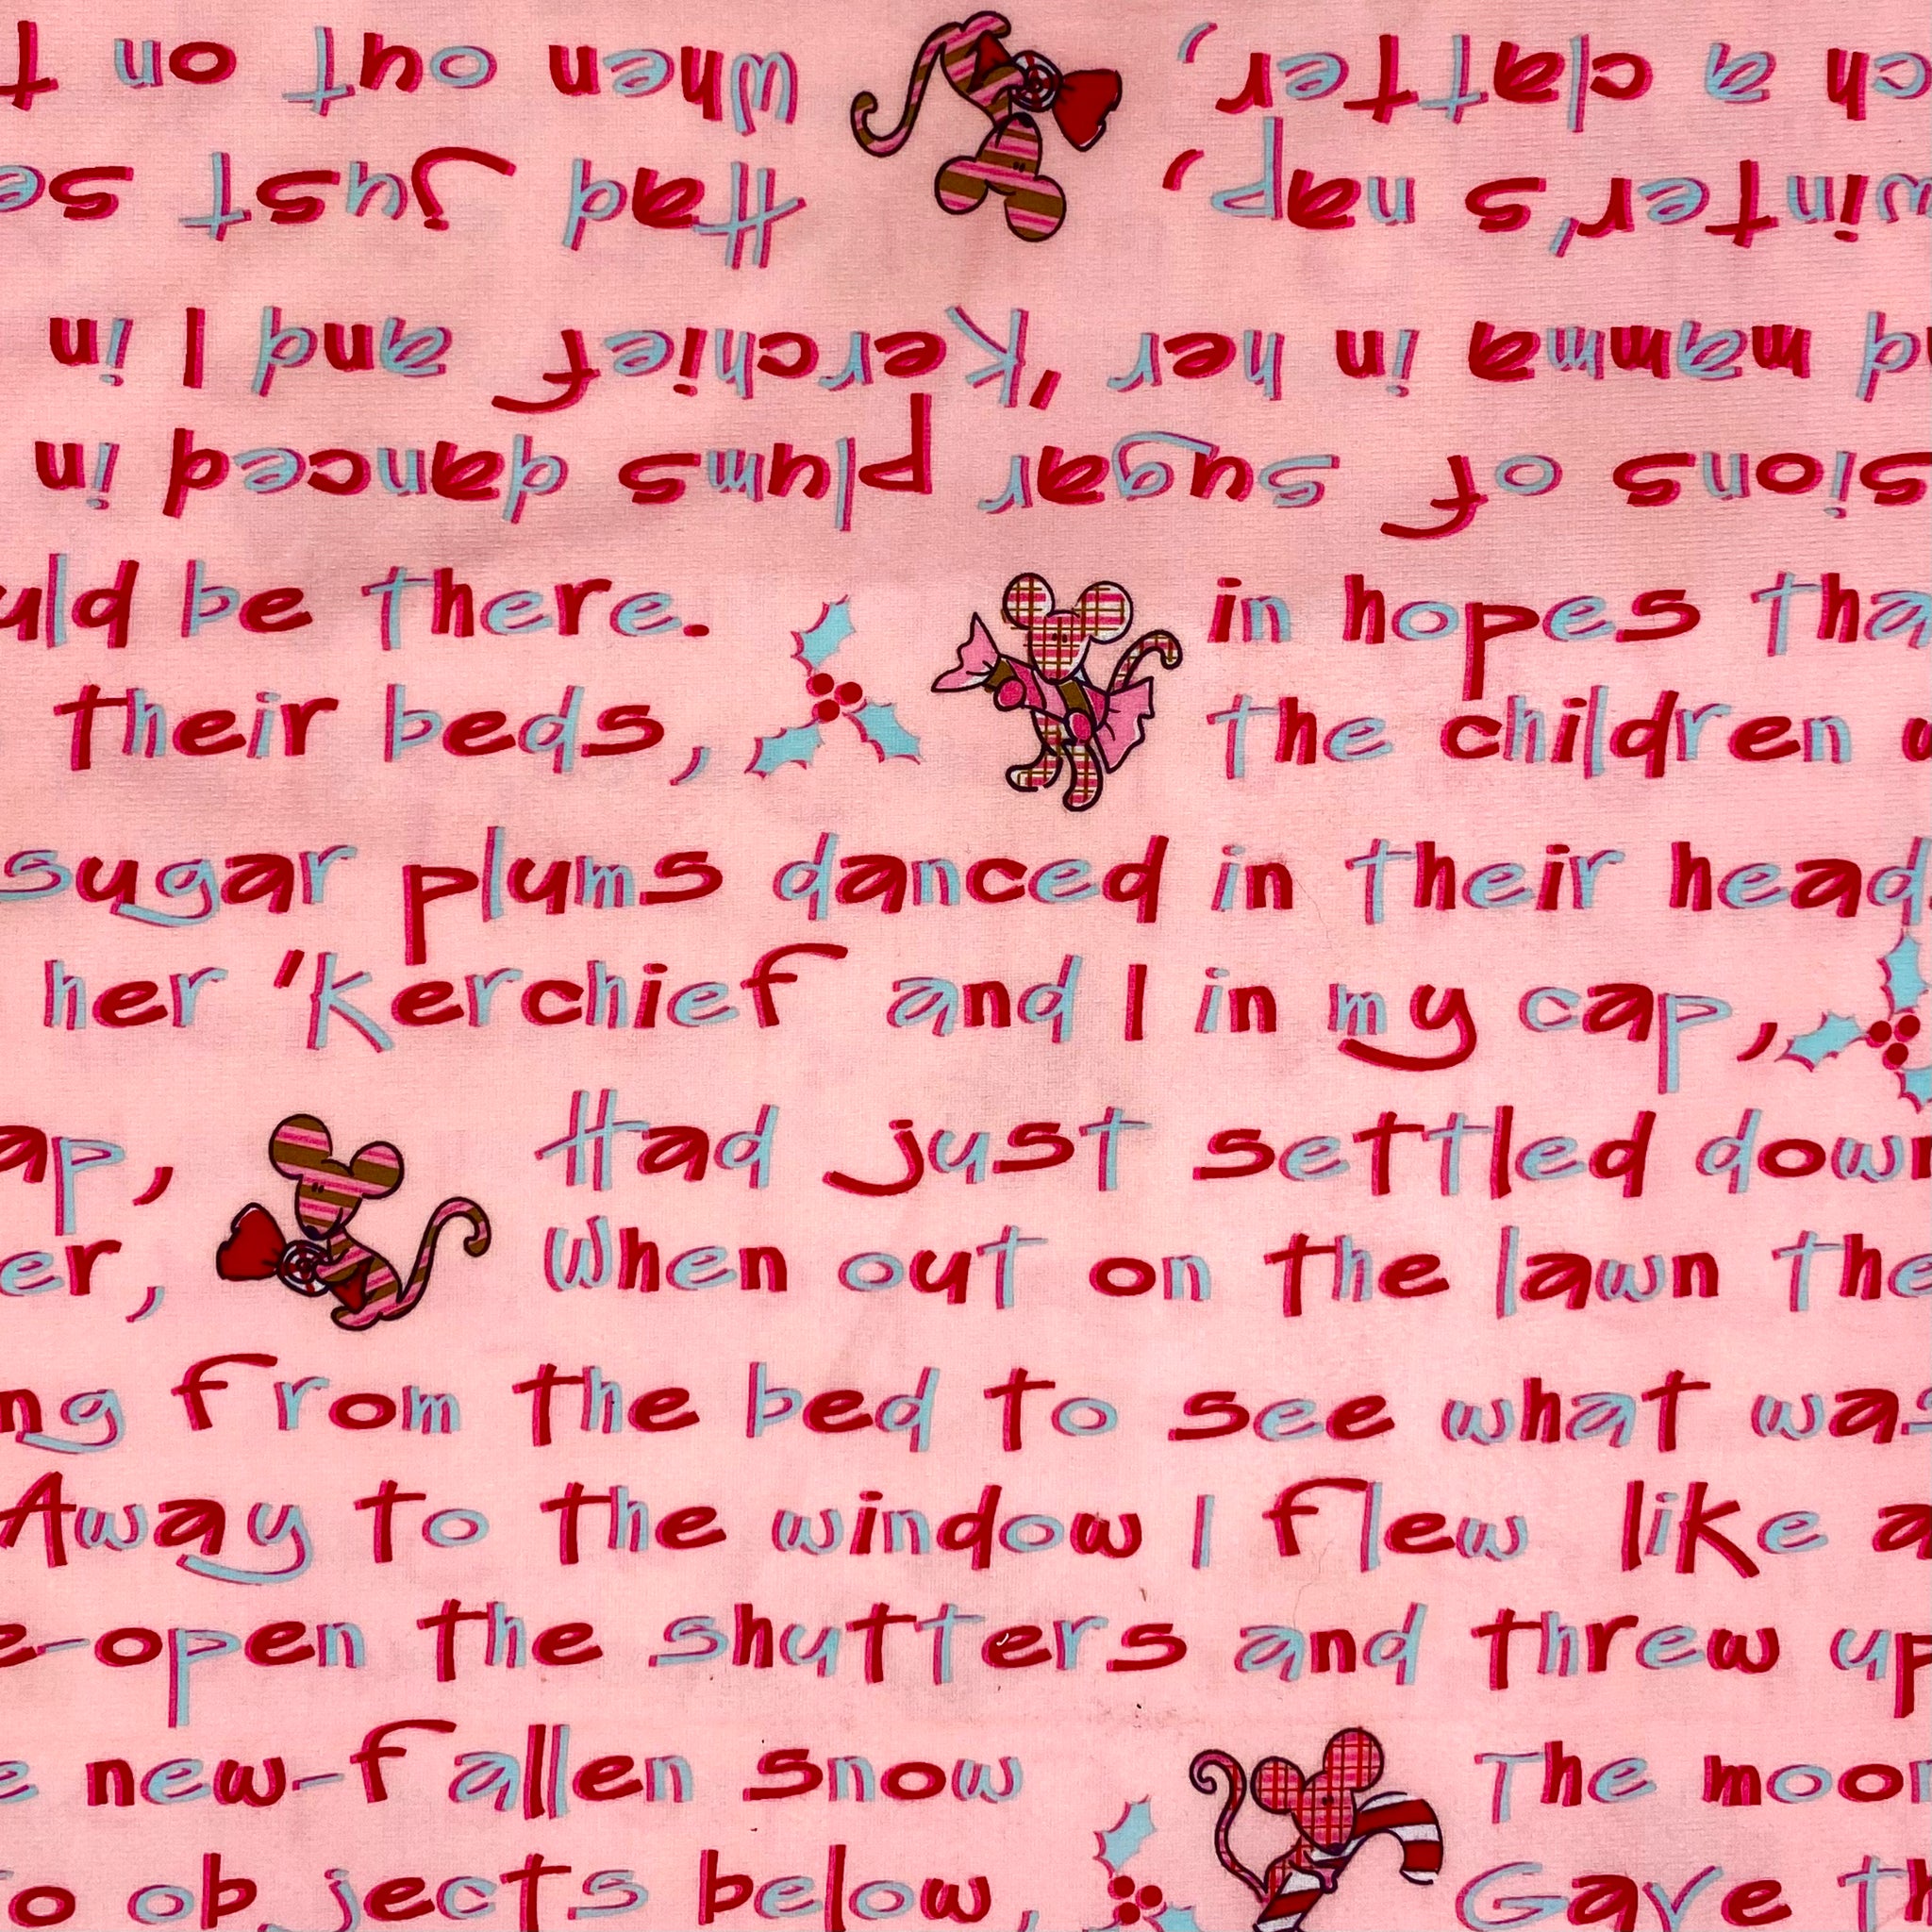 sions of sugar plums danced in
d mamma in her 'Kerchief and I in
winter's nap, Had just se
ch a clatter, When out on t
uld be there. in hopes tha
their beds, the children w
sugar plums danced in their head
her 'Kerchief and I in my cap,
ap, Had just settled down
er, When out on the lawn the
ng from the bed to see what was
Away to the window I flew like a
e-open the shutters and threw up
e new-fallen snow The moon
o objects below, Gave th